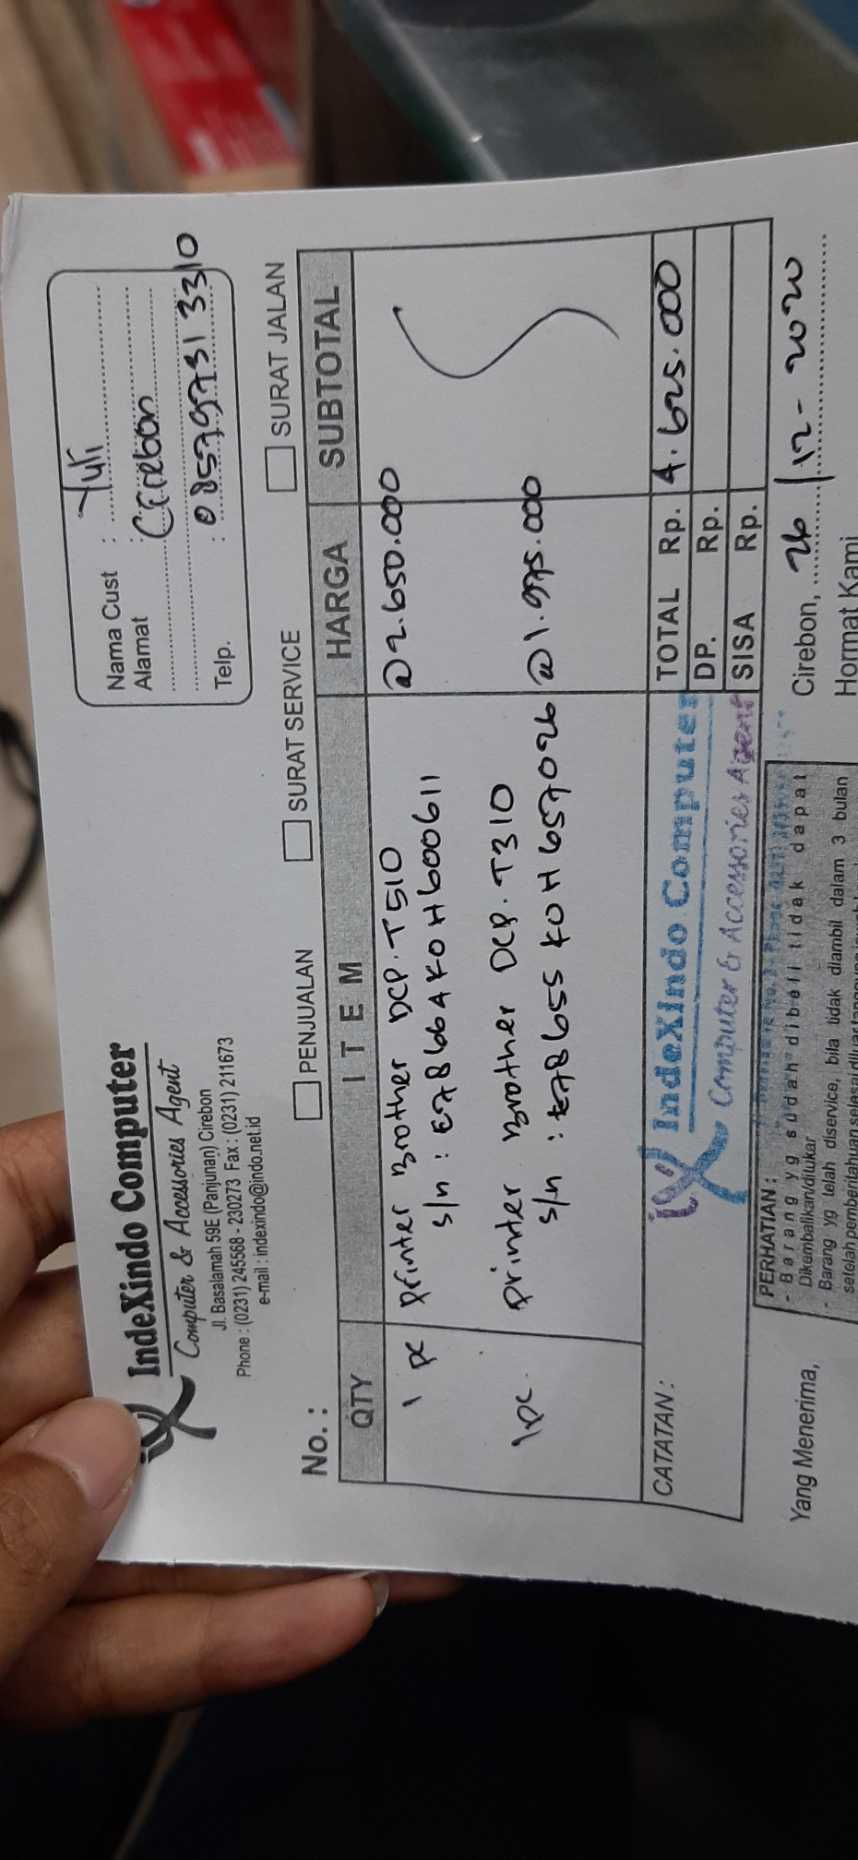 IndeXindo Computer
Computer & Accessories Agent
Jl. Basalamah 59E (Panjunan) Cirebon
Phone : (0231) 245568 - 230273 Fax : (0231) 211673
e-mail : indexindo@indo.net.id
Nama Cust : Yuli
Alamat : Cirebon
Telp. : 085797313310
No. : PENJUALAN SURAT SERVICE SURAT JALAN
QTY ITEM HARGA SUBTOTAL
1 pc Printer Brother DCP.T510 @2.650.000
s/n : E78664K0H600611
1 pc. Printer Brother DCP.T310
s/n : E78655K0H657026 @1.975.000
CATATAN : TOTAL Rp. 4.625.000
DP. Rp.
SISA Rp.
IndeXindo Computer
Computer & Accessories Agent
PERHATIAN :
- Barang yg sudah dibeli tidak dapat
Dikembalikan/ditukar
- Barang yg telah diservice, bila tidak diambil dalam 3 bulan
setelah pemberitahuan selesai diluar
Cirebon, 26/12-2020
Yang Menerima, Hormat Kami